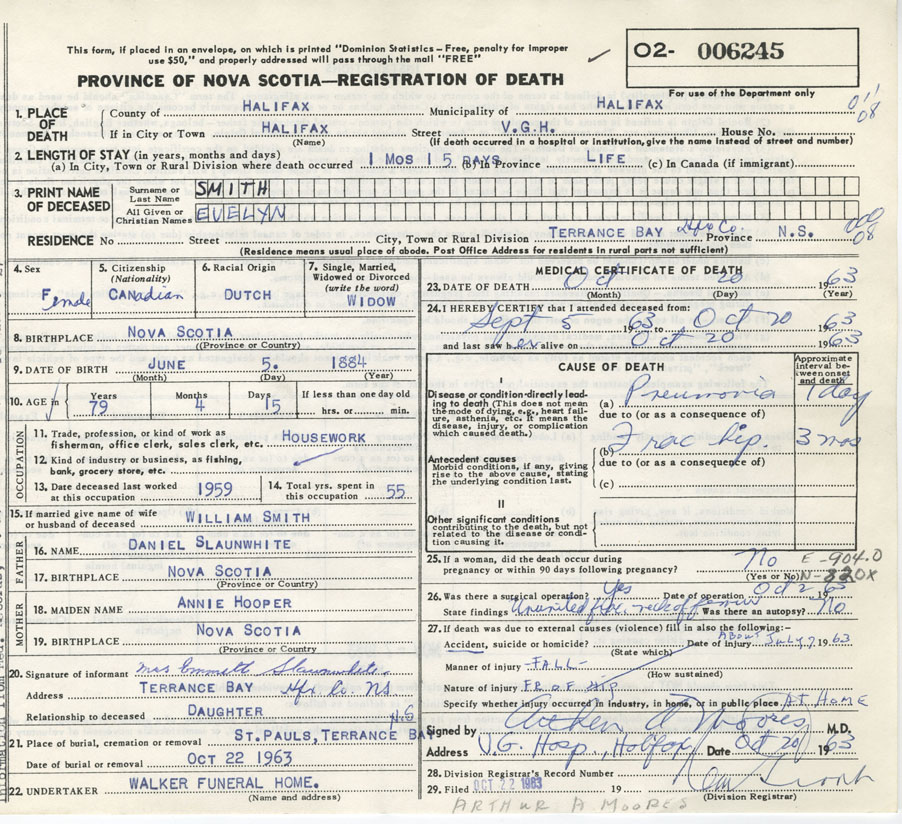 This form, if placed in an envelope, on which is printed "Dominion Statistics – Free, penalty for improper
use $50," and properly addressed will pass through the mail "FREE"
O2- 006245
PROVINCE OF NOVA SCOTIA—REGISTRATION OF DEATH
For use of the Department only
1. PLACE OF DEATH
County of HALIFAX Municipality of HALIFAX
If in City or Town HALIFAX Street V.G.H. House No.
(Name) (If death occurred in a hospital or institution, give the name instead of street and number)
2. LENGTH OF STAY (in years, months and days)
(a) In City, Town or Rural Division where death occurred 1 MOS 15 DAYS (b) in Province LIFE (c) In Canada (if immigrant)
3. PRINT NAME OF DECEASED
Surname or Last Name SMITH
All Given or Christian Names EVELYN
RESIDENCE No Street City, Town or Rural Division TERRANCE BAY Hfx Co. Province N.S.
(Residence means usual place of abode. Post Office Address for residents in rural parts not sufficient)
08
08
4. Sex Female
5. Citizenship (Nationality) CANADIAN
6. Racial Origin DUTCH
7. Single, Married, Widowed or Divorced (write the word) WIDOW
8. BIRTHPLACE NOVA SCOTIA
(Province or Country)
9. DATE OF BIRTH JUNE 5. 1884
(Month) (Day) (Year)
10. AGE in Years 79 Months 4 Days 15 If less than one day old
hrs. or min.
OCCUPATION
11. Trade, profession or kind of work as fisherman, office clerk, sales clerk, etc. HOUSEWORK
12. Kind of industry or business, as fishing, bank, grocery store, etc.
13. Date deceased last worked at this occupation 1959
14. Total yrs. spent in this occupation 55
15. If married give name of wife or husband of deceased WILLIAM SMITH
FATHER
16. NAME DANIEL SLAUNWHITE
17. BIRTHPLACE NOVA SCOTIA
(Province or Country)
MOTHER
18. MAIDEN NAME ANNIE HOOPER
19. BIRTHPLACE NOVA SCOTIA
(Province or Country
20. Signature of informant Mrs Emmett Slaunwhite
Address TERRANCE BAY Hfx Co. NS
Relationship to deceased DAUGHTER
N.S
21. Place of burial, cremation or removal ST. PAULS, TERRANCE BAY
Date of burial or removal OCT 22 1963
22. UNDERTAKER WALKER FUNERAL HOME.
(Name and address)
MEDICAL CERTIFICATE OF DEATH
23. DATE OF DEATH Oct 20 1963
(Month) (Day) (Year)
24. I HEREBY CERTIFY that I attended deceased from:
Sept 5 1963 to Oct 20 1963
and last saw her alive on Oct 20 1963
CAUSE OF DEATH
Approximate interval between onset and death
I
Disease or condition directly leading to death (This does not mean the mode of dying, e.g., heart failure, asthenia, etc. It means the disease, injury, or complication which caused death.)
(a) Pneumonia 1 day
due to (or as a consequence of)
(b) Frac hip 3 mos
due to (or as a consequence of)
Antecedent causes
Morbid conditions, if any, giving rise to the above cause, stating the underlying condition last.
(c)
II
Other significant conditions contributing to the death, but not related to the disease or condition causing it.
25. If a woman, did the death occur during pregnancy or within 90 days following pregnancy? No
(Yes or No)
E-904.0
N-820X
26. Was there a surgical operation? Yes Date of operation Oct 2 1963
State findings Ununited frac. neck of femur Was there an autopsy? No
27. If death was due to external causes (violence) fill in also the following:–
Accident, suicide or homicide? Date of injury ABOUT July 7, 1963
(State which)
Manner of injury FALL
(How sustained)
Nature of injury FR OF HIP
Specify whether injury occurred in industry, in home, or in public place. AT HOME
Signed by Arthur A Moores M.D.
Address V.G. Hosp, Halifax Date Oct 20 1963
28. Division Registrar's Record Number
29. Filed OCT 22 1963 19
(Division Registrar)
ARTHUR A. MOORES